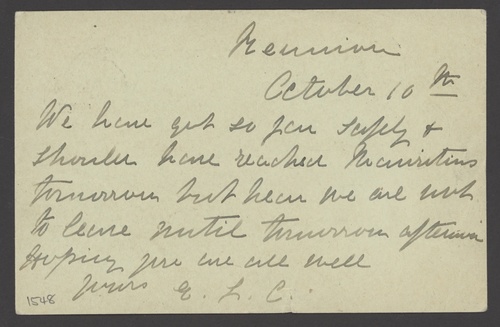 Reunion
October 10th
We have got so far safely &
should have reached Mauritius
tomorrow but hear we are not
to leave until tomorrow afternoon
Hoping you are all well
yours E. L. C.
1548